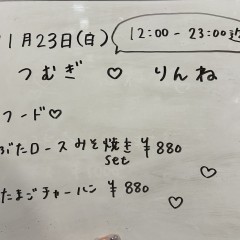 11月23日(白) 12:00-23:00迄
つむぎ♡りんね
フード♡
ぶたロースみそ焼き ¥880
set
たまごチャーハン ¥880